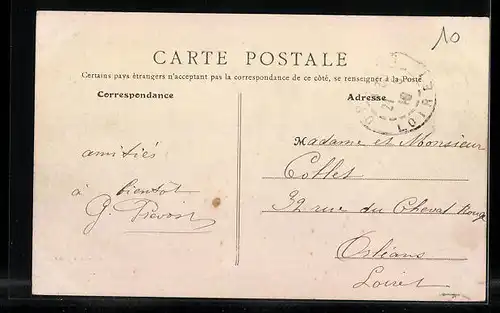 10
CARTE POSTALE
Certains pays étrangers n'acceptant pas la correspondance de ce côté, se renseigner à la Poste
Correspondance
Adresse
LOIRET
Madame et Monsieur
Collet
32 rue du Cheval Rouge
Orléans
Loiret
amitiés
à bientôt
G. Prévost